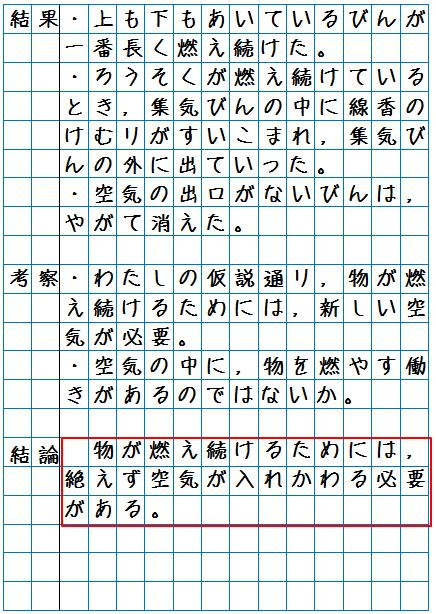 結果・上も下もあいているびんが
一番長く燃え続けた。
・ろうそくが燃え続けている
とき，集気びんの中に線香の
けむりがすいこまれ，集気び
んの外に出ていった。
・空気の出口がないびんは，
やがて消えた。
考察・わたしの仮説通り，物が燃
え続けるためには，新しい空
気が必要。
・空気の中に，物を燃やす働
きがあるのではないか。
結論　物が燃え続けるためには，
絶えず空気が入れかわる必要
がある。